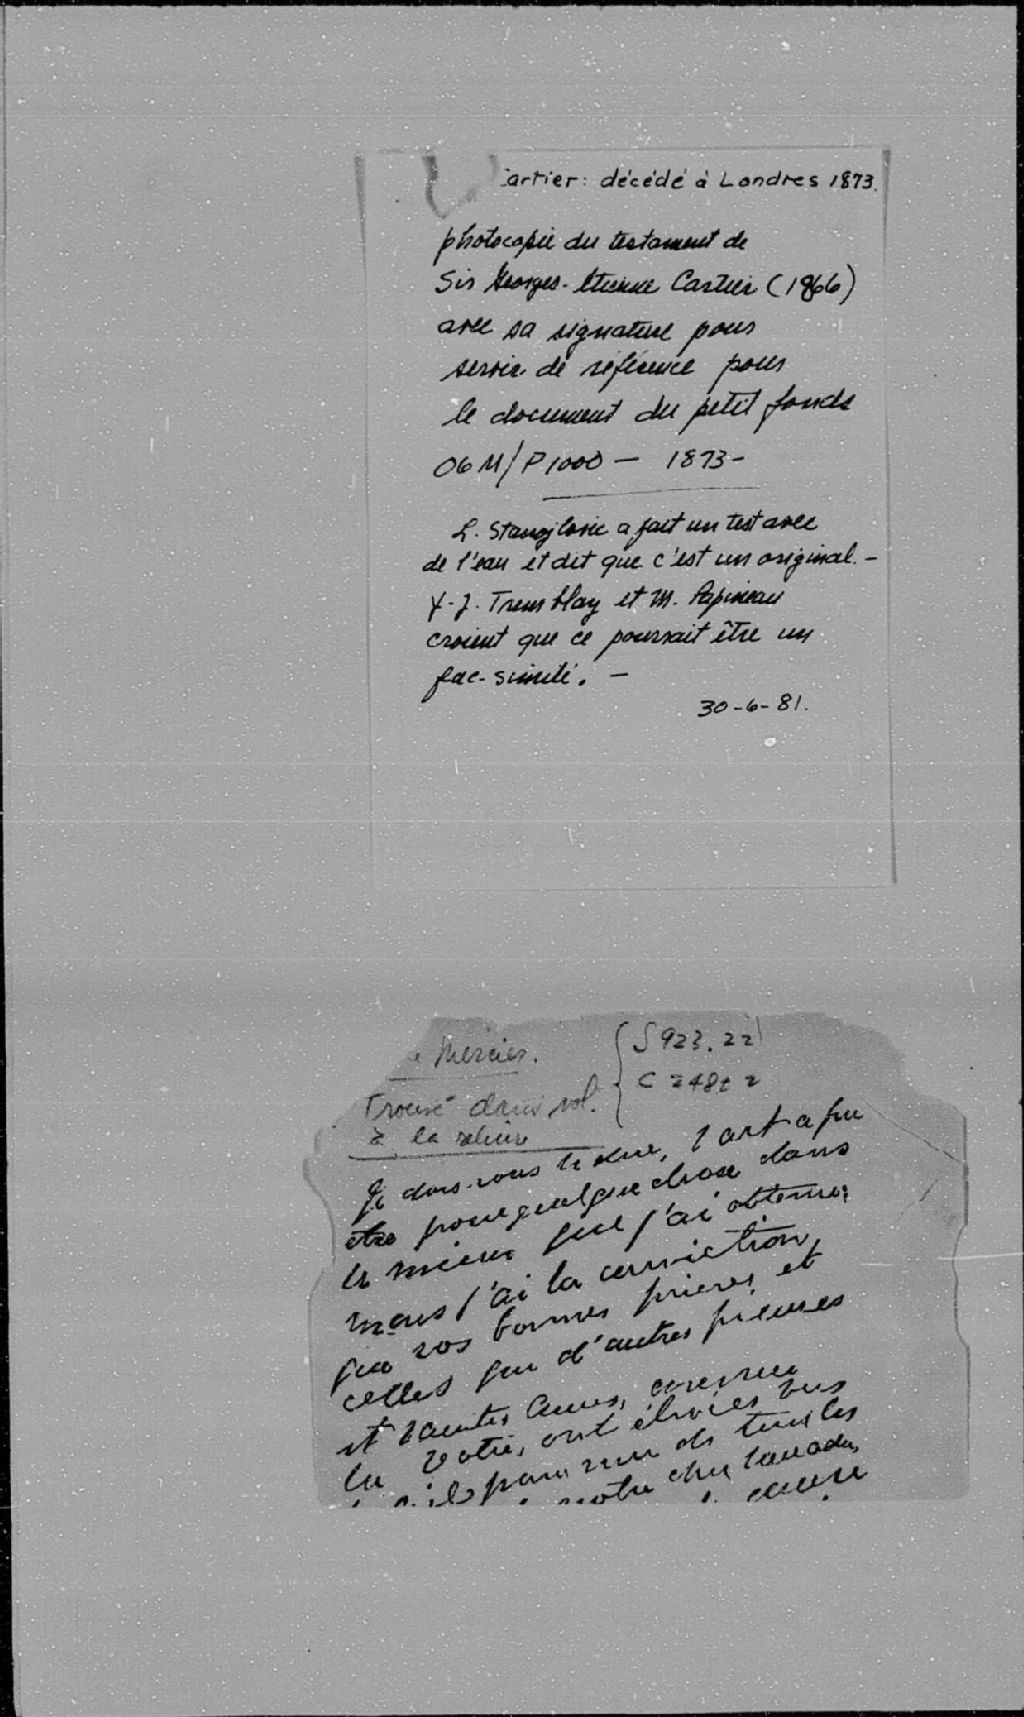 Cartier: décédé à Londres 1873.
photocopie du testament de
Sir Georges-Etienne Cartier (1866)
avec sa signature pour
servir de référence pour
le document du petit fonds
06M/P1000 — 1873-
L. Stanojlovic a fait un test avec
de l'eau et dit que c'est un original. -
Y-J. Tremblay et M. Papineau
croient que ce pourrait être un
fac-similé. -
30-6-81.
Mercier.
S 923.22
C 248
Trouvé dans vol.
à la reliure
Je dois vous le dire, l'art a pu
être pour quelque chose dans
le mieux que j'ai obtenu,
mais j'ai la conviction,
que vos bonnes prières et
celles que d'autres pieuses
et saintes âmes, comme
la votre, ont élevées vers
notre cher Canada,
cause